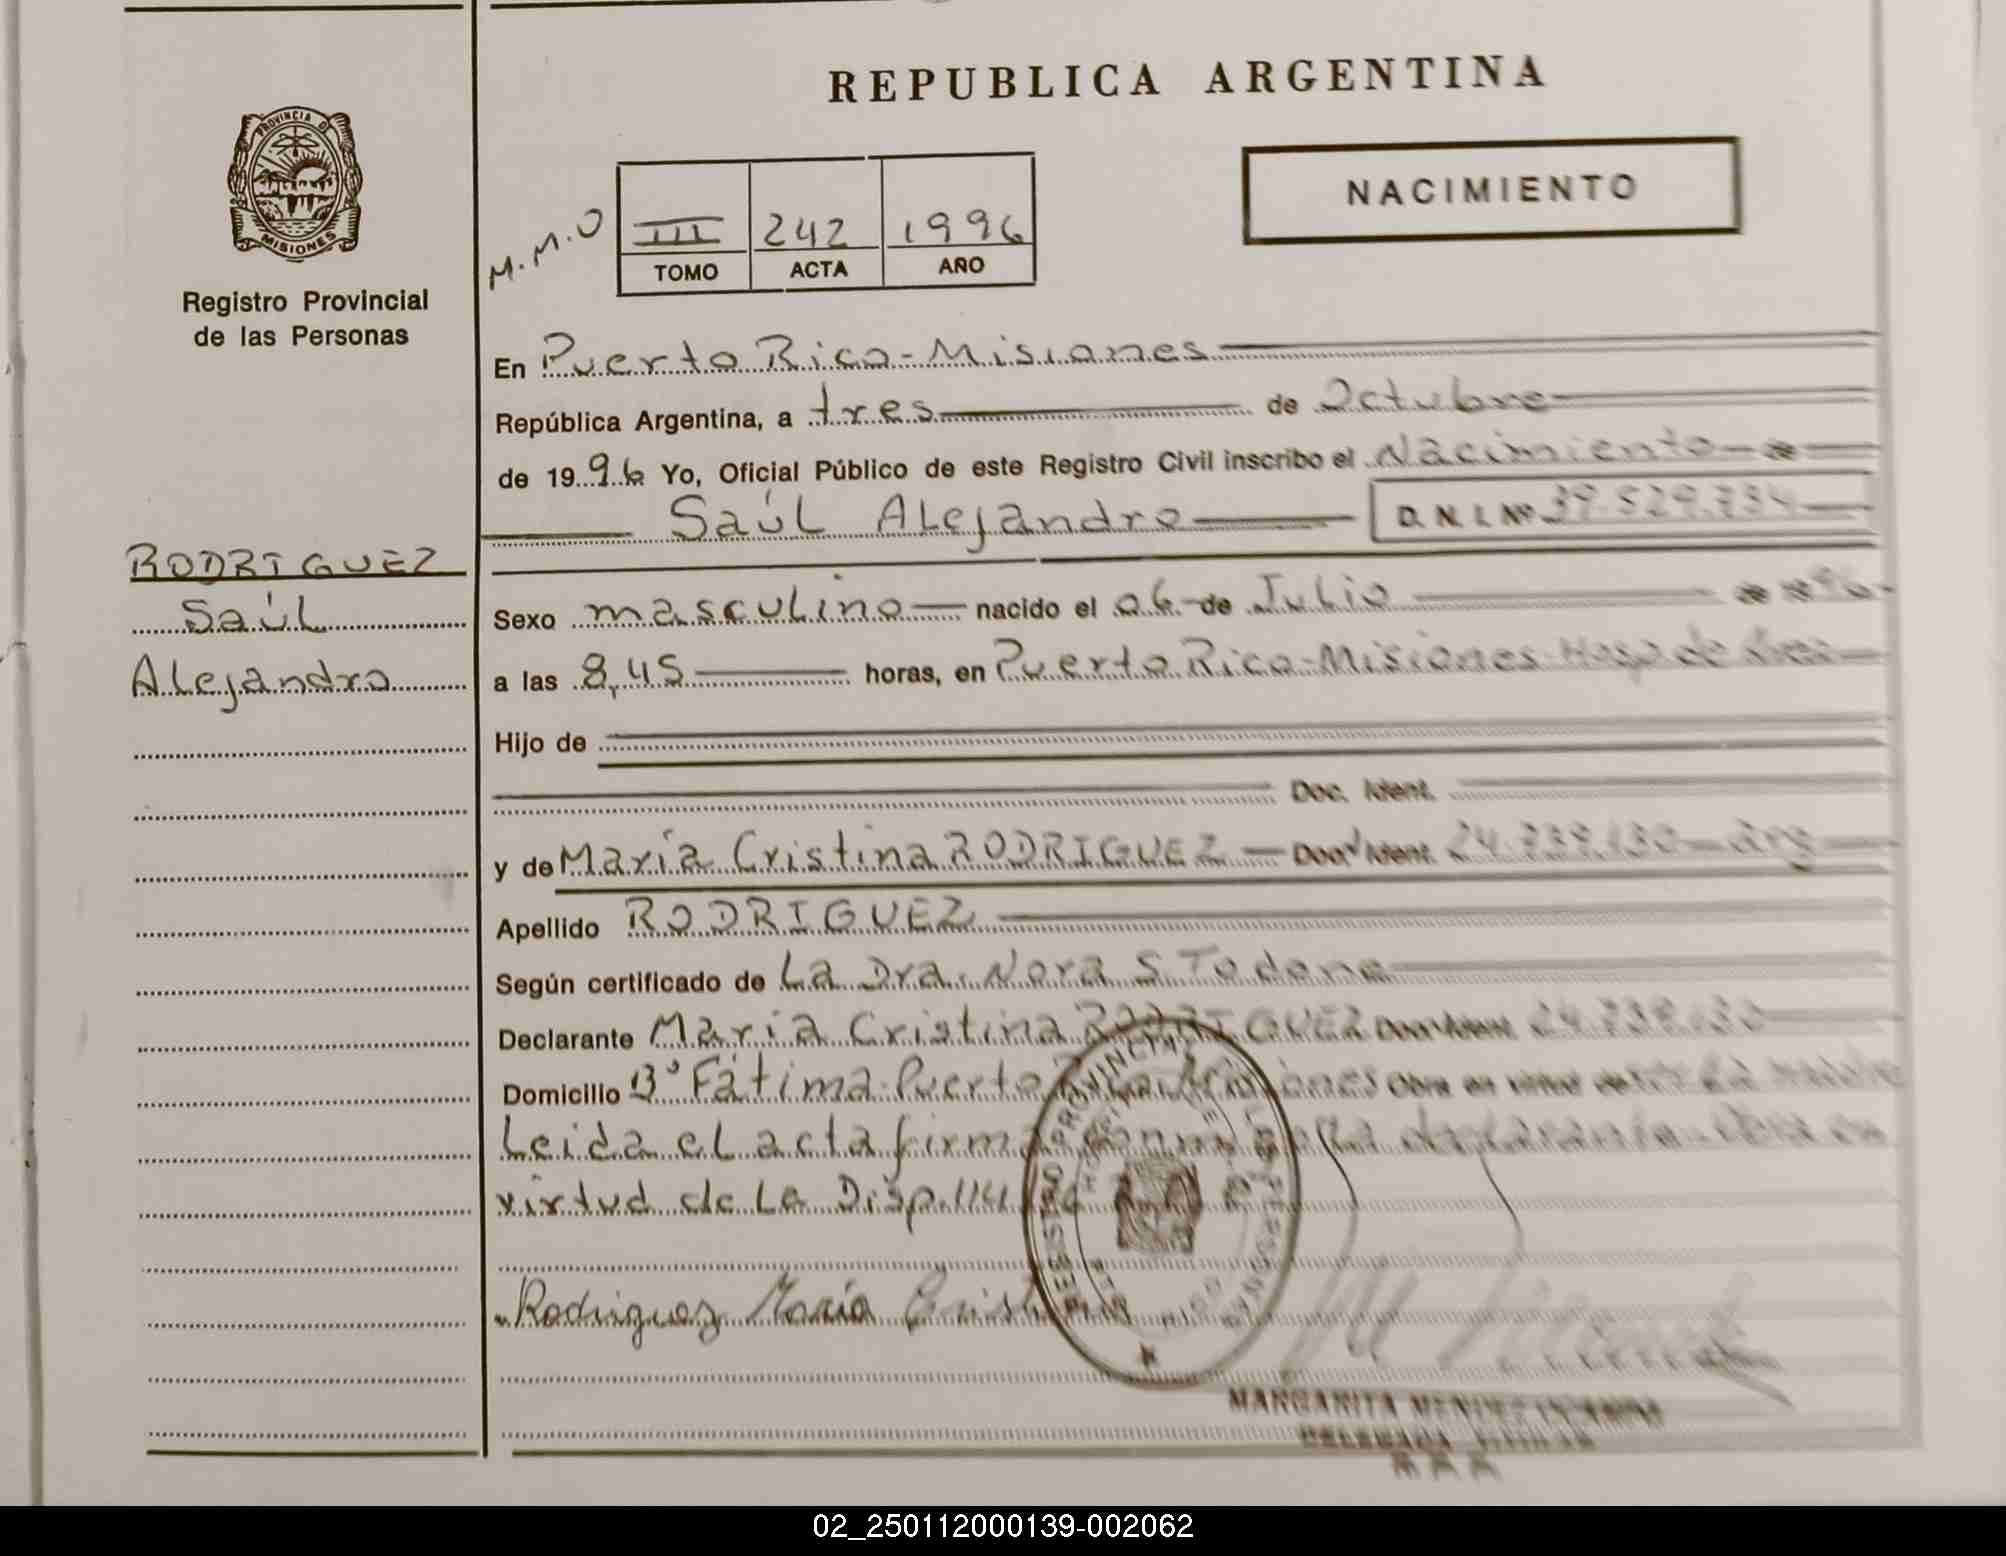 REPUBLICA ARGENTINA
PROVINCIA D
MISIONES
Registro Provincial
de las Personas
NACIMIENTO
M.M.O
III 242 1996
TOMO ACTA AÑO
En Puerto Rico - Misiones
República Argentina, a tres de Octubre
de 1996 Yo, Oficial Público de este Registro Civil inscribo el Nacimiento de
Saúl Alejandro D. N. I. Nº
RODRIGUEZ
Saúl
Alejandro
Sexo masculino nacido el 06 de Julio de 1996
a las 8,45 horas, en Puerto Rico - Misiones - Hosp de
Hijo de
Doc. Ident.
y de María Cristina RODRIGUEZ Doc. Ident. arg
Apellido RODRIGUEZ
Según certificado de La Dra. Nora S.
Declarante María Cristina RODRIGUEZ Doc. Ident.
Domicilio Bº Fátima - Puerto Rico - Misiones Obra en virtud de
Leida el acta firma la declarante - Obra en
virtud de La Disp.
Rodriguez María
REGISTRO PROVINCIAL
MARGARITA
02_250112000139-002062